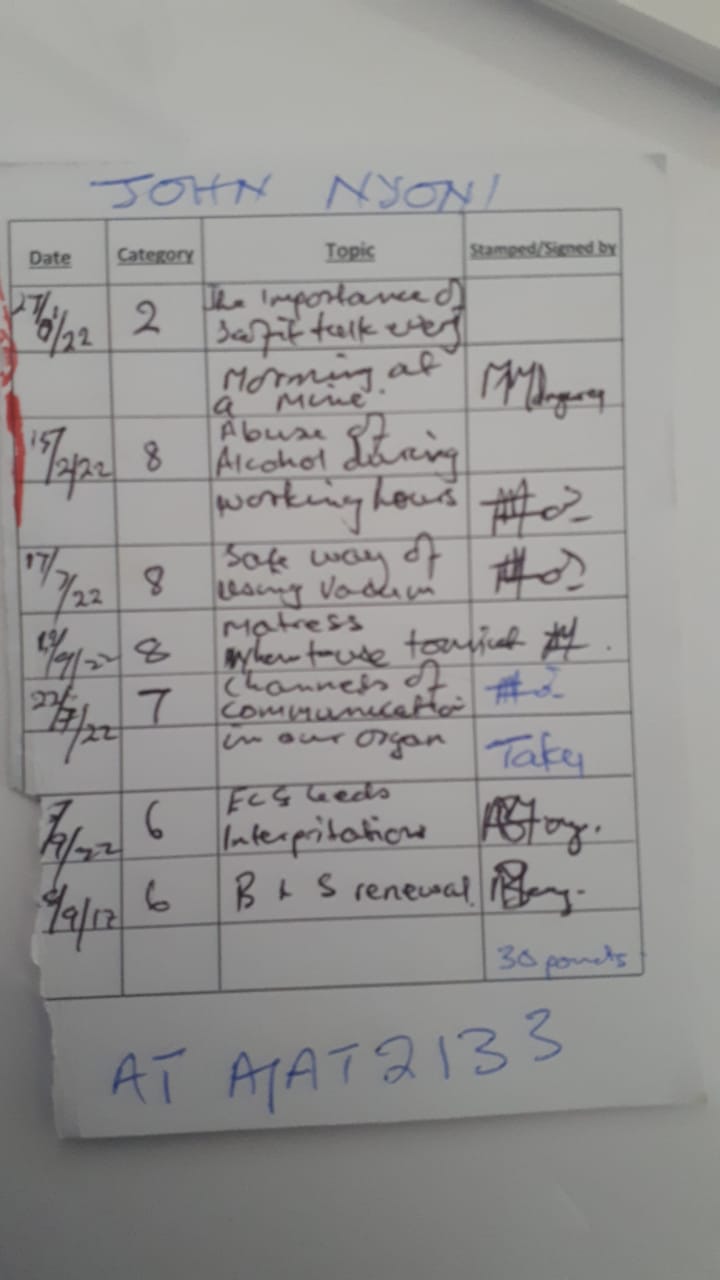 JOHN NYONI
Date Category Topic Stamped/Signed by
The importance of
2 safit talk every
/22
Morning at
a mine.
15/2/22 8 Abuse of
Alcohol during
working hours
17/7/22 8 Safe way of
using
8 Matress
when to use
22/7/22 7 Channels of
communication
in our organ
Takey
6 ECG Leeds
Interpritations
/9/12 6 B L S renewal
30 points
AT A/AT2133